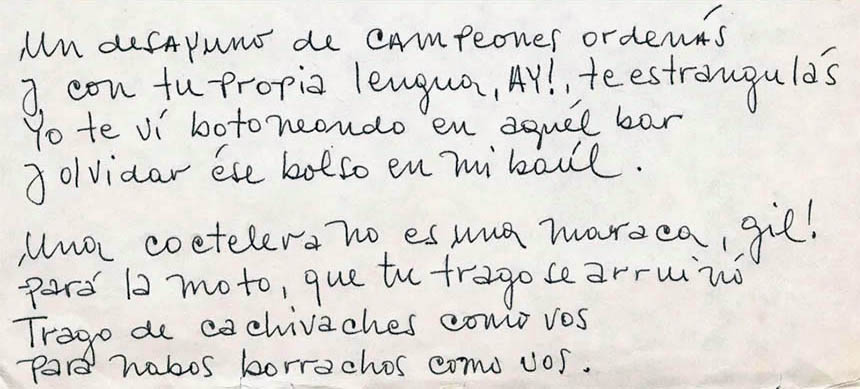 Un desayuno de campeones ordenás
y con tu propia lengua, AY!, te estrangulás
Yo te ví botoneando en aquél bar
y olvidar ése bolso en mi baúl.
Una coctelera no es una maraca, gil!
pará la moto, que tu trago se arruinó
Trago de cachivaches como vos
para nabos borrachos como vos.